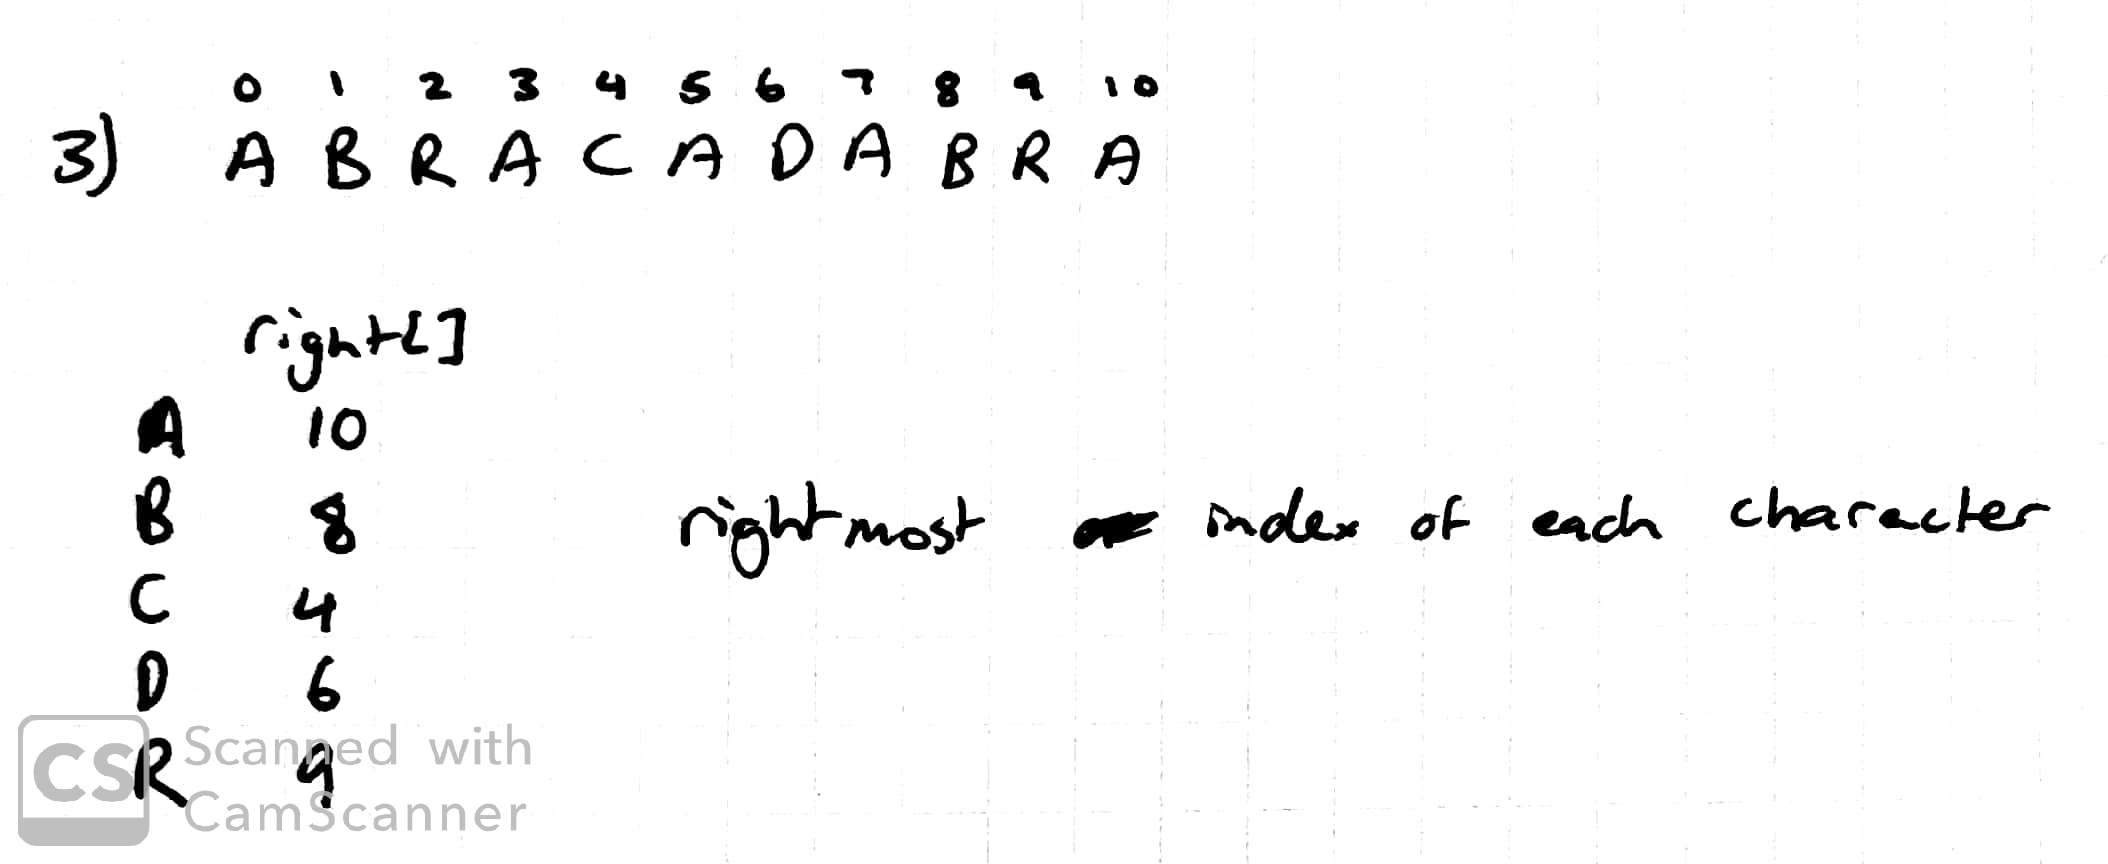 0 1 2 3 4 5 6 7 8 9 10
3) A B R A C A D A B R A
right[]
A 10
B 8
rightmost index of each character
C 4
D 6
R 9
CS Scanned with
CamScanner